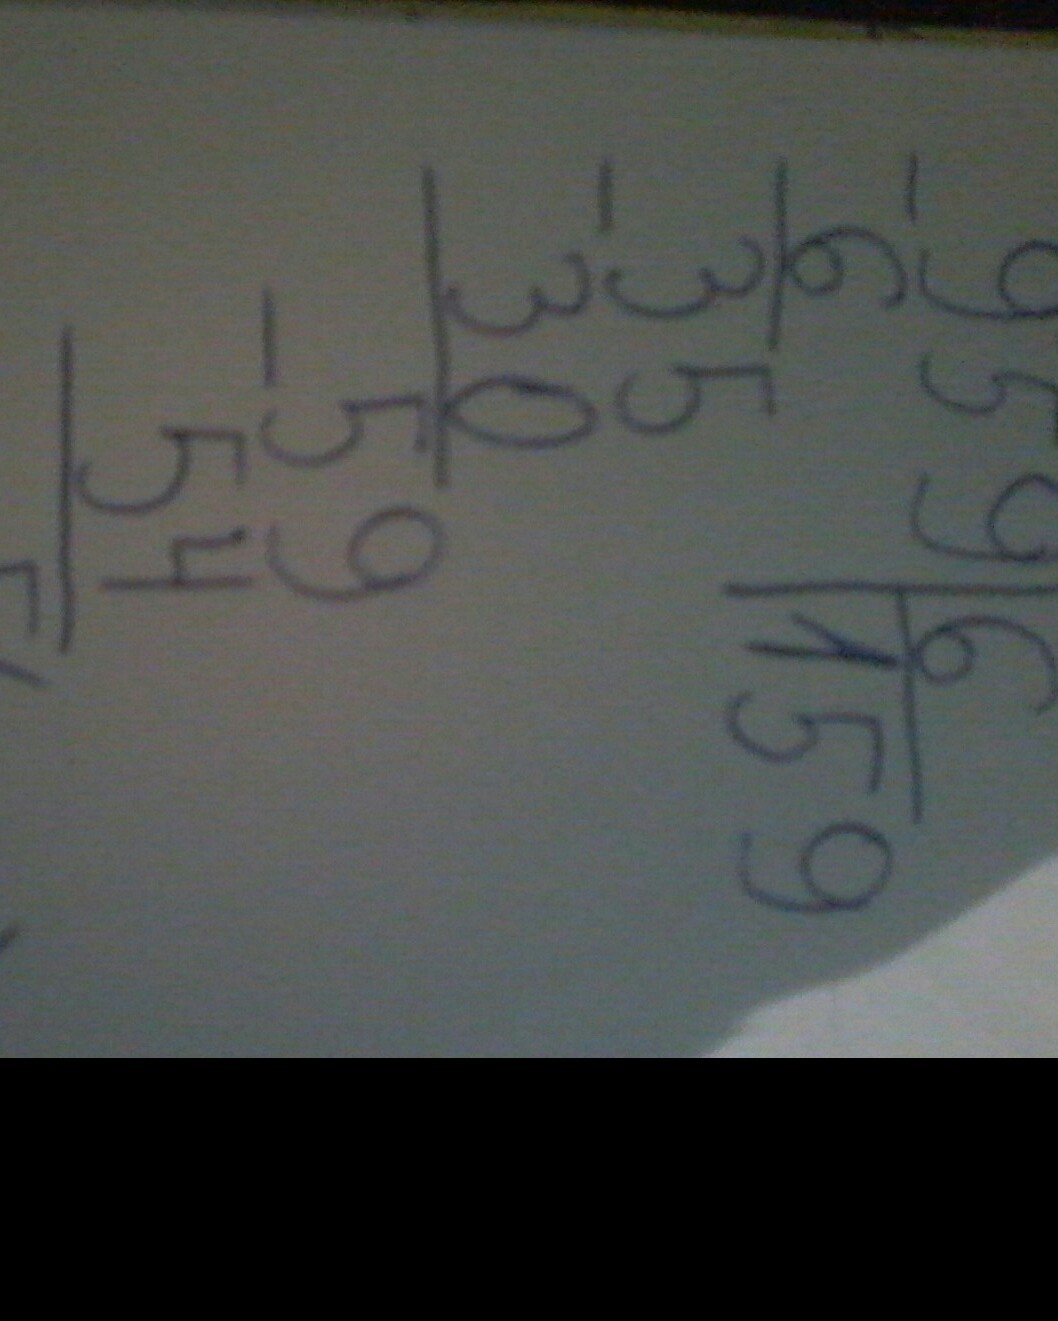 959 | 6
- 6 | 159
35
- 30
59
- 54
5